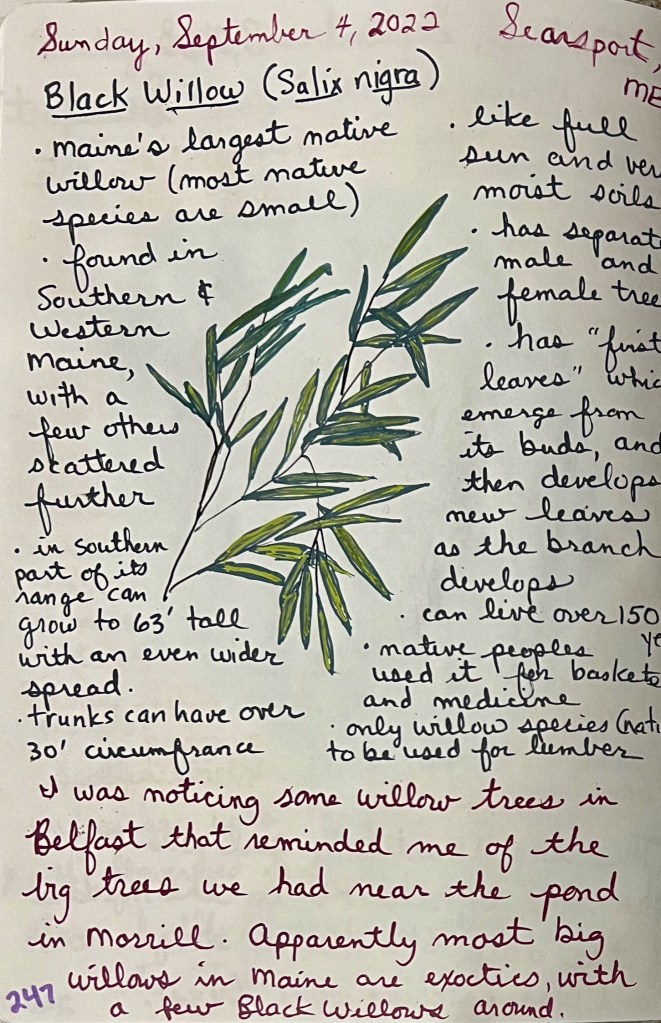 Sunday, September 4, 2022 Searsport, ME
Black Willow (Salix nigra)
· Maine's largest native
willow (most native
species are small)
· found in
Southern &
Western
Maine,
with a
few others
skattered
further
· in southern
part of its
range can
grow to 63' tall
with an even wider
spread.
· trunks can have over
30' circumfrance
· like full
sun and ver
moist soils
· has separat
male and
female tree
· has "first
leaves" whic
emerge from
its buds, and
then develops
new leaves
as the branch
develops
· can live over 150
ye
· native peoples
used it for baskets
and medicine
· only willow species (nati
to be used for lumber
I was noticing some willow trees in
Belfast that reminded me of the
big trees we had near the pond
in Morrill. Apparently most big
willows in Maine are exoctics, with
a few Black Willows around.
247